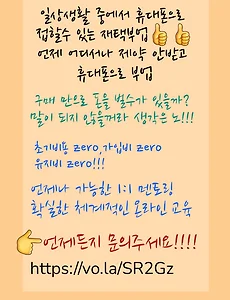 일상생활 중에서 휴대폰으로
접할수 있는 재택부업👍👍
언제 어디서나 제약 안받고
휴대폰으로 부업
구매 만으로 돈을 벌수가 있을까?
말이 되지 않을꺼라 생각은 노!!!
초기비용 zero,가입비 zero
유지비 zero!!!
언제나 가능한 1:1 멘토링
확실한 체계적인 온라인 교육
👉언제든지 문의주세요!!!!
https://vo.la/SR2Gz